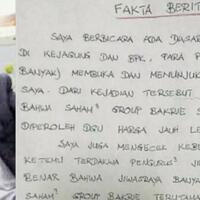 FAKTA BERIT
SAYA BERBICARA ADA DASAR
DI KEJAGUNG DAN BPK, PARA P
BANYAK) MEMBUKA DAN MENUNJUK
SAYA. DARI KEJADIAN TERSEBUT
BAHWA SAHAM² GROUP BAKRIE S
DIPEROLEH DGN HARGA JAUH LE
SAYA JUGA MENGECEK KEBE
KETEMU TERDAKWA PENGURUS² JIW
BENAR BAHWA JIWASRAYA BANYA
SAHAM² GROUP BAKRIE TERUTAMA